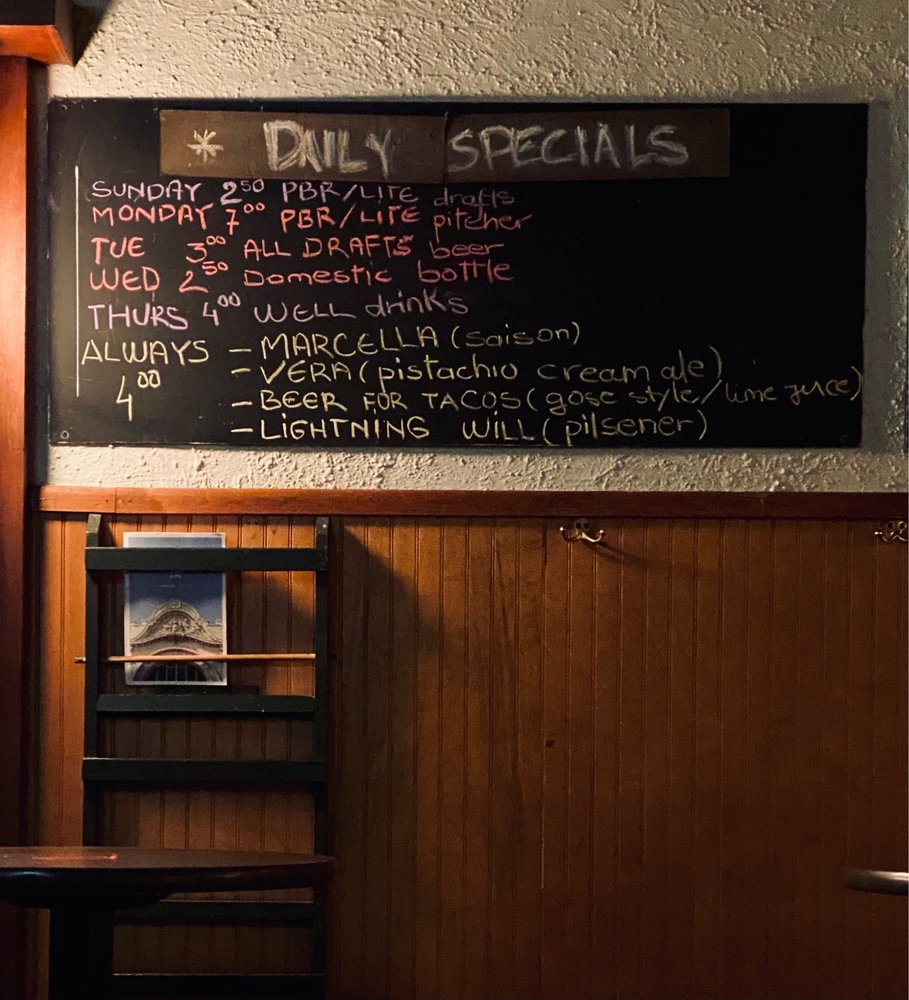 * DAILY SPECIALS
SUNDAY 2⁵⁰ PBR/LITE drafts
MONDAY 7⁰⁰ PBR/LITE pitcher
TUE 3⁰⁰ ALL DRAFTS beer
WED 2⁵⁰ Domestic bottle
THURS 4⁰⁰ WELL drinks
ALWAYS – MARCELLA (saison)
4⁰⁰ – VERA (pistachio cream ale)
– BEER FOR TACOS (gose style/lime juice)
– LIGHTNING WILL (pilsener)